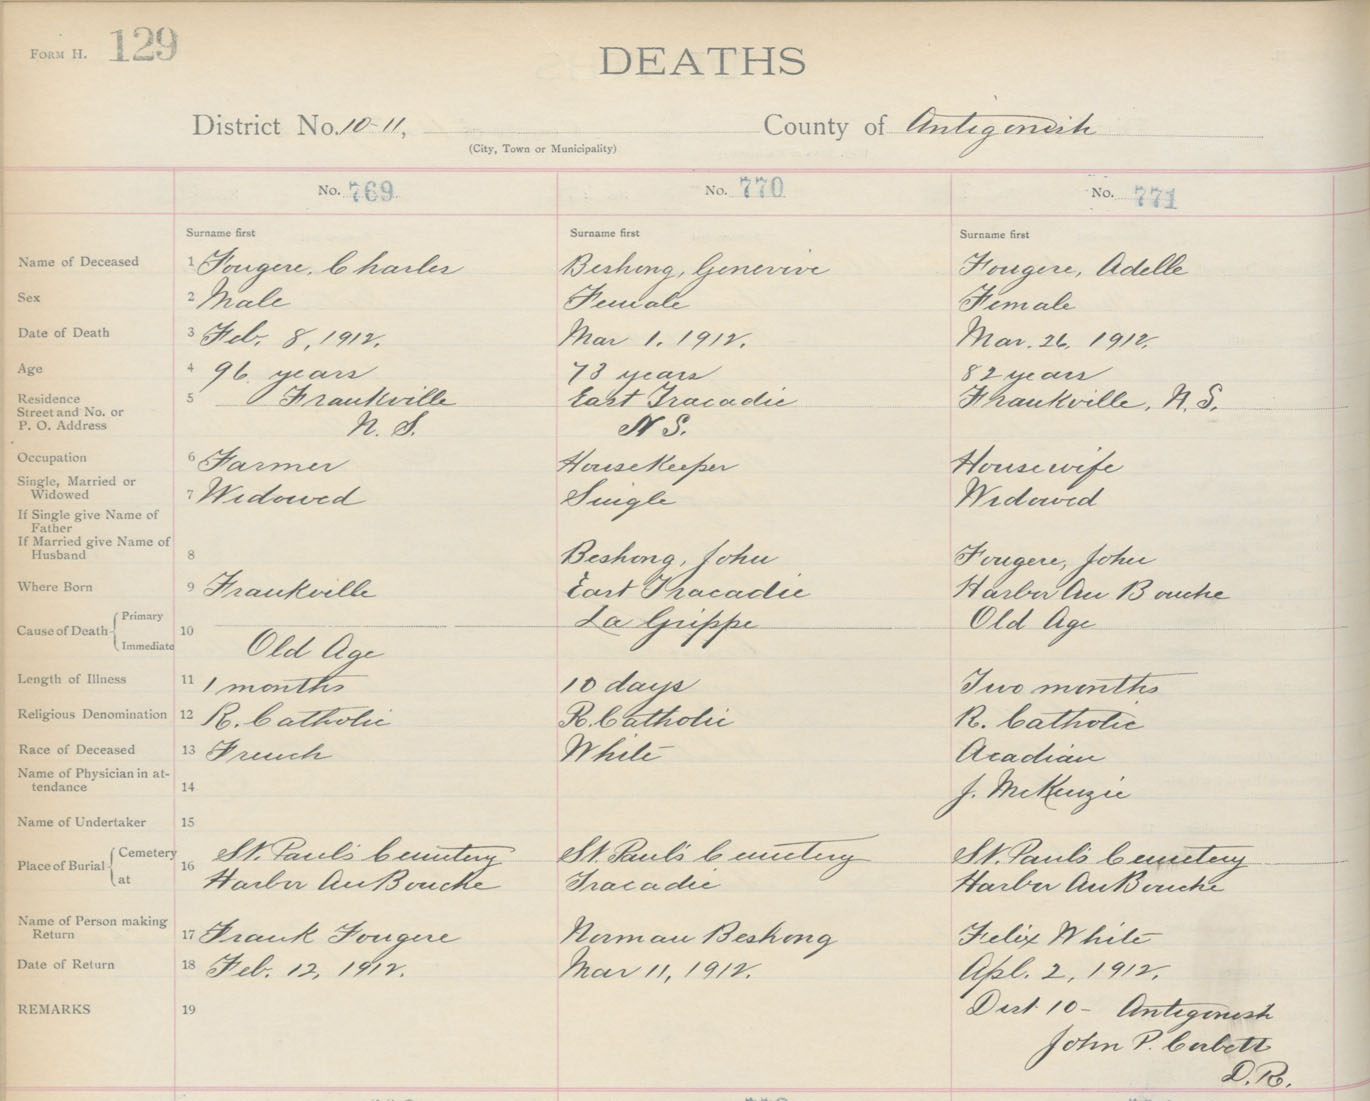 FORM H. 129
DEATHS
District No. 10-11, County of Antigonish
(City, Town or Municipality)
No. 769 No. 770 No. 771
Surname first Surname first Surname first
Name of Deceased 1 Fougere, Charles Beshong, Genevive Fougere, Adelle
Sex 2 Male Female Female
Date of Death 3 Feb. 8, 1912. Mar 1. 1912. Mar. 26, 1912.
Age 4 96 years 73 years 82 years
Residence 5 Frankville East Tracadie Frankville, N.S.
Street and No. or
P. O. Address N.S. N S.
Occupation 6 Farmer HouseKeeper Housewife
Single, Married or
Widowed 7 Widowed Single Widowed
If Single give Name of
Father
If Married give Name of
Husband 8 Beshong, John Fougere, John
Where Born 9 Frankville East Tracadie Harbor Au Bouche
Cause of Death Primary 10 La Grippe Old Age
Immediate Old Age
Length of Illness 11 1 months 10 days Two months
Religious Denomination 12 R. Catholic R. Catholic R. Catholic
Race of Deceased 13 French White Acadian
Name of Physician in at-
tendance 14 J. McKenzie
Name of Undertaker 15
Place of Burial Cemetery 16 St. Paul's Cemetery St. Paul's Cemetery St. Paul's Cemetery
at Harbor Au Bouche Tracadie Harbor Au Bouche
Name of Person making
Return 17 Frank Fougere Norman Beshong Felix White
Date of Return 18 Feb. 12, 1912. Mar 11, 1912. Apl. 2, 1912.
REMARKS 19 Dist 10- Antigonish
John P. Corbett
D.R.